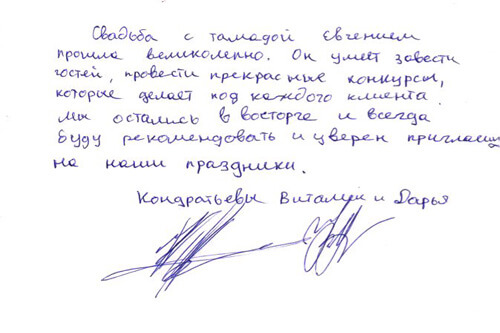 Свадьба с тамадой Евгением
прошла великолепно. Он умеет завести
гостей, провести прекрасные конкурсы,
которые делает под каждого клиента.
Мы остались в восторге и всегда
буду рекомендовать и уверен приглашу
на наши праздники.
Кондратьевы Виталий и Дарья